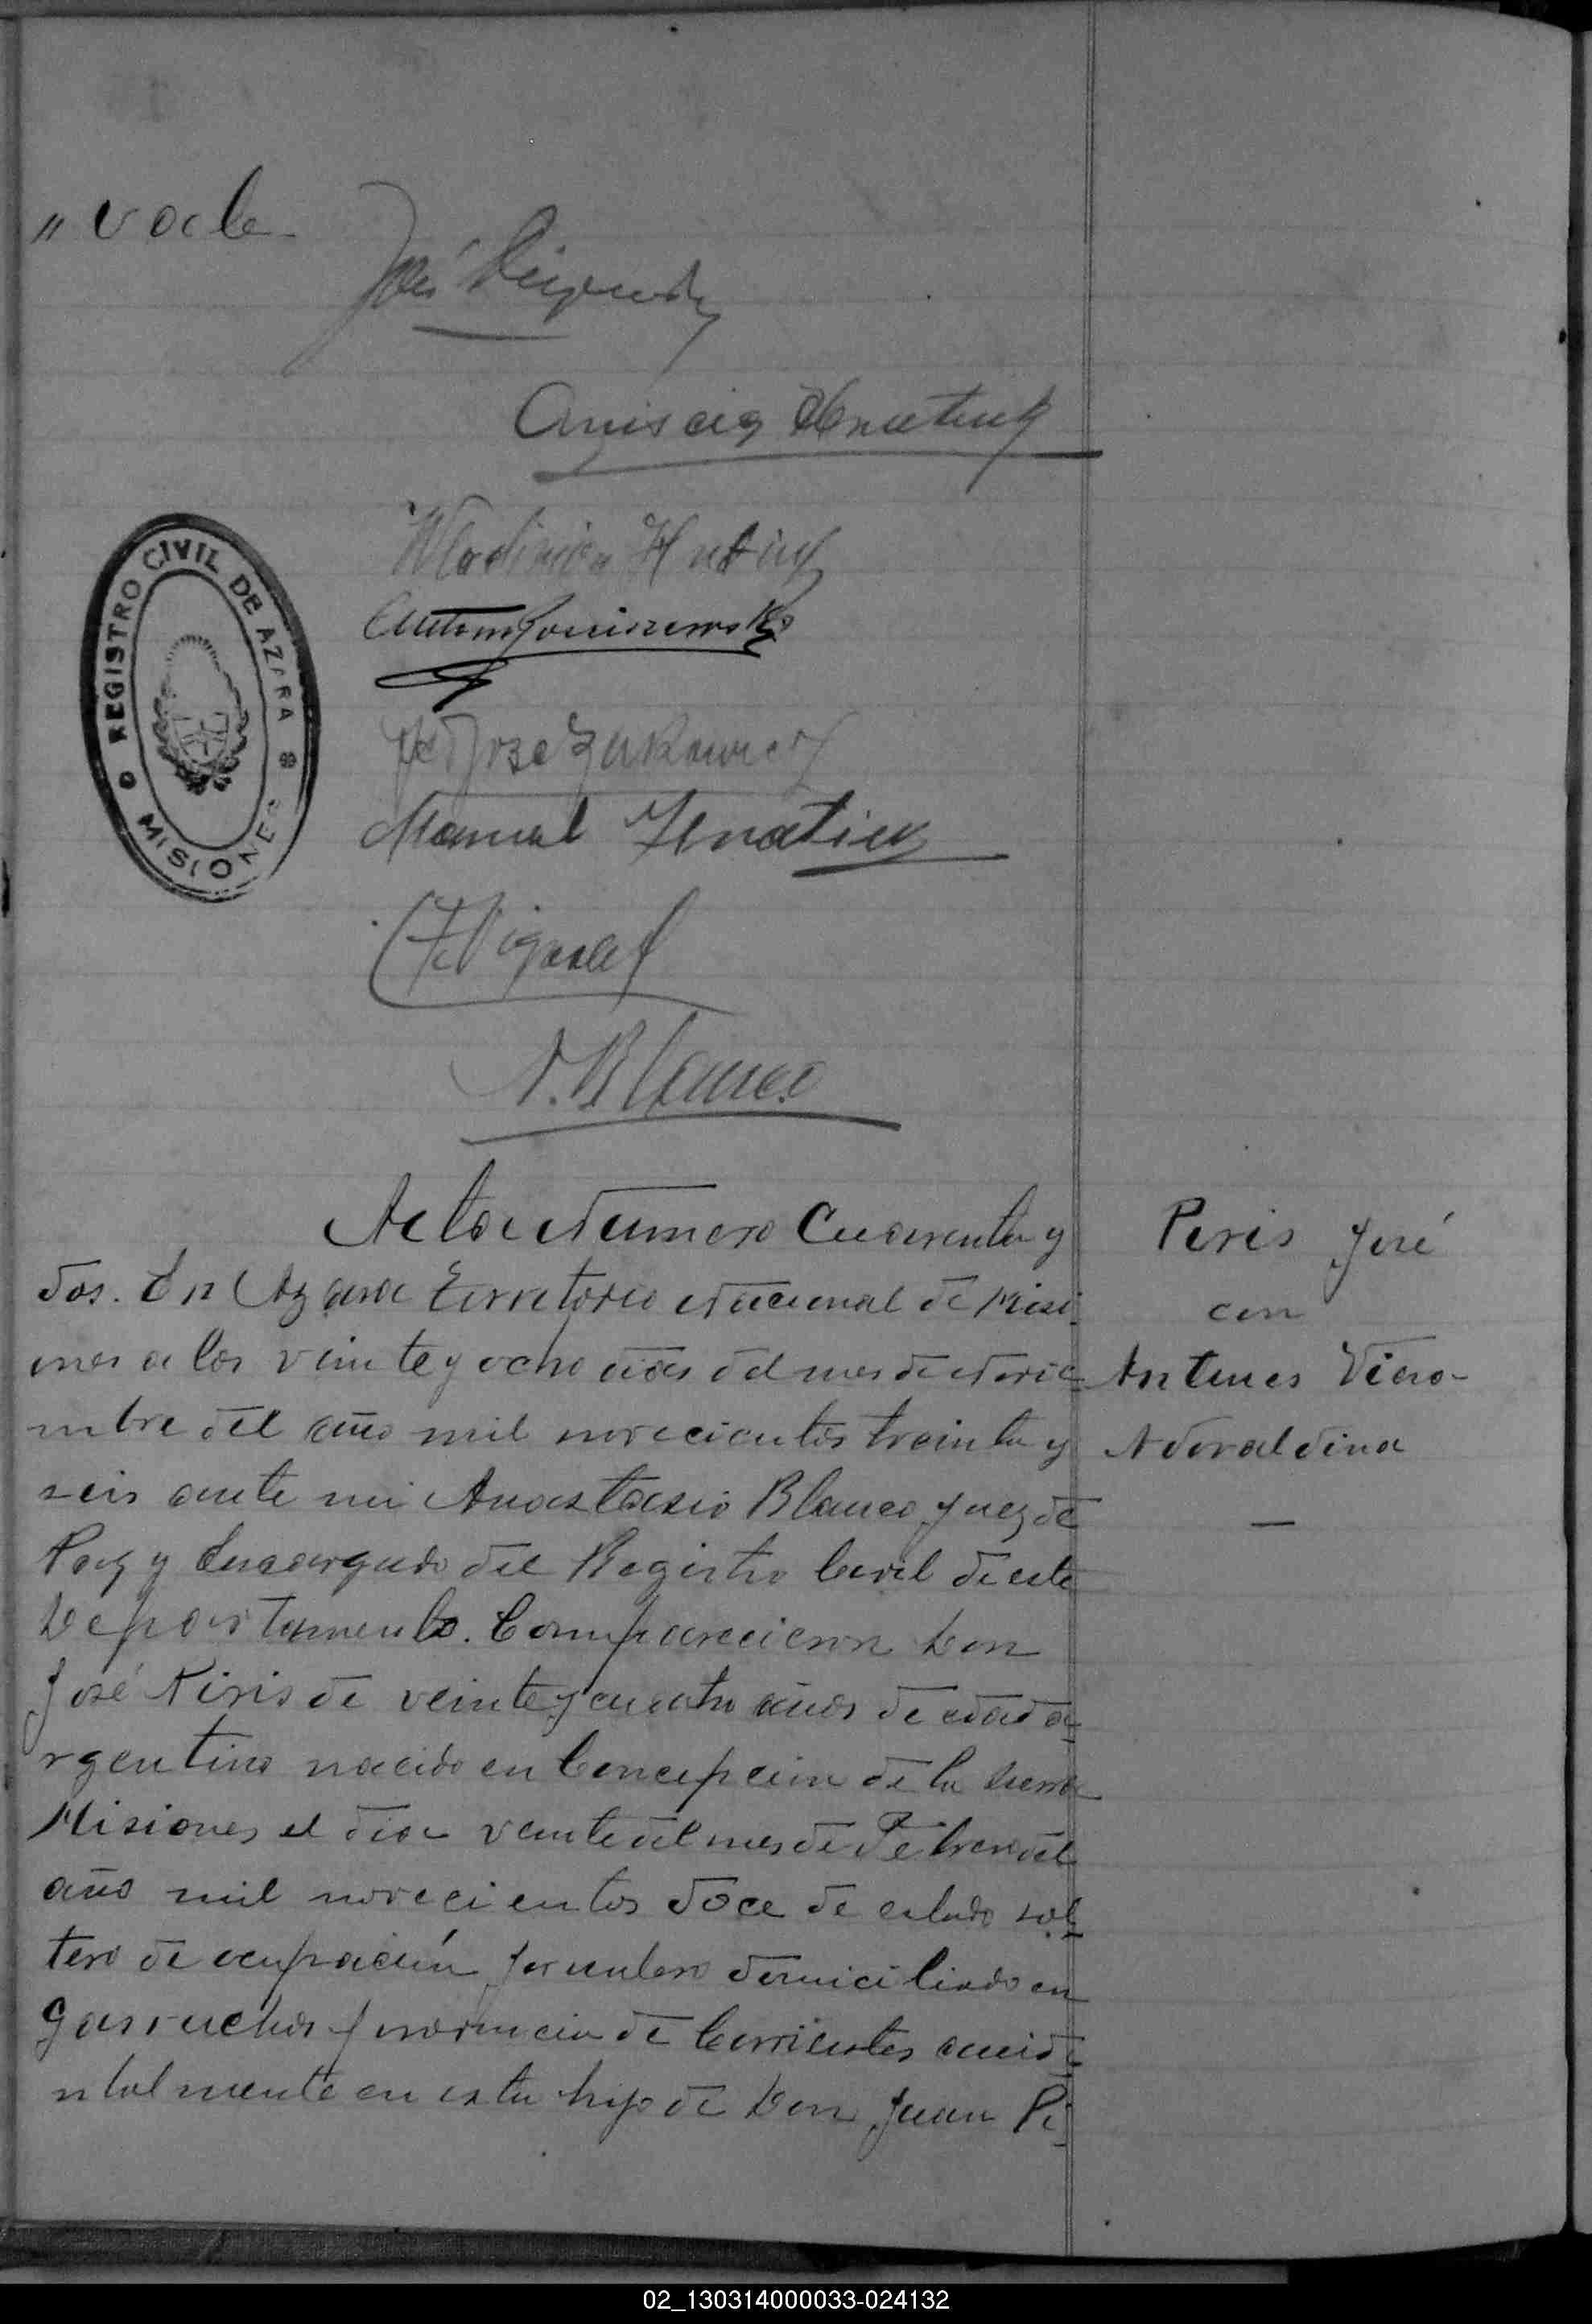 " vale
José
REGISTRO CIVIL DE AZARA
MISIONES
Manuel
A. Blanco
Acta Numero Cuarenta y
dos. En Azara Territorio Nacional de Misi
ones a los veinte y ocho dias del mes de Novie
mbre del año mil novecientos treinta y
seis ante mi Anastasio Blanco Juez de
Paz y Encargado del Registro Civil de este
Departamento. Comparecieron Don
José Piris de veinte y cuatro años de edad a
rgentino nacido en Concepcion de la Sierra
Misiones el dia veinte del mes de Febrero del
año mil novecientos doce de estado sol
tero de ocupación jornalero domiciliado en
Garruchos provincia de Corrientes accide
ntalmente en esta hijo de Don Juan Pi
Peris José
con
Antunes Viera
Adoraldina
02_130314000033-024132